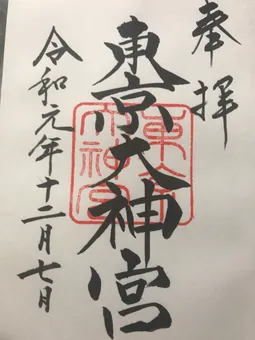 奉拝
東京大神宮
東京大神宮
令和元年十二月七日